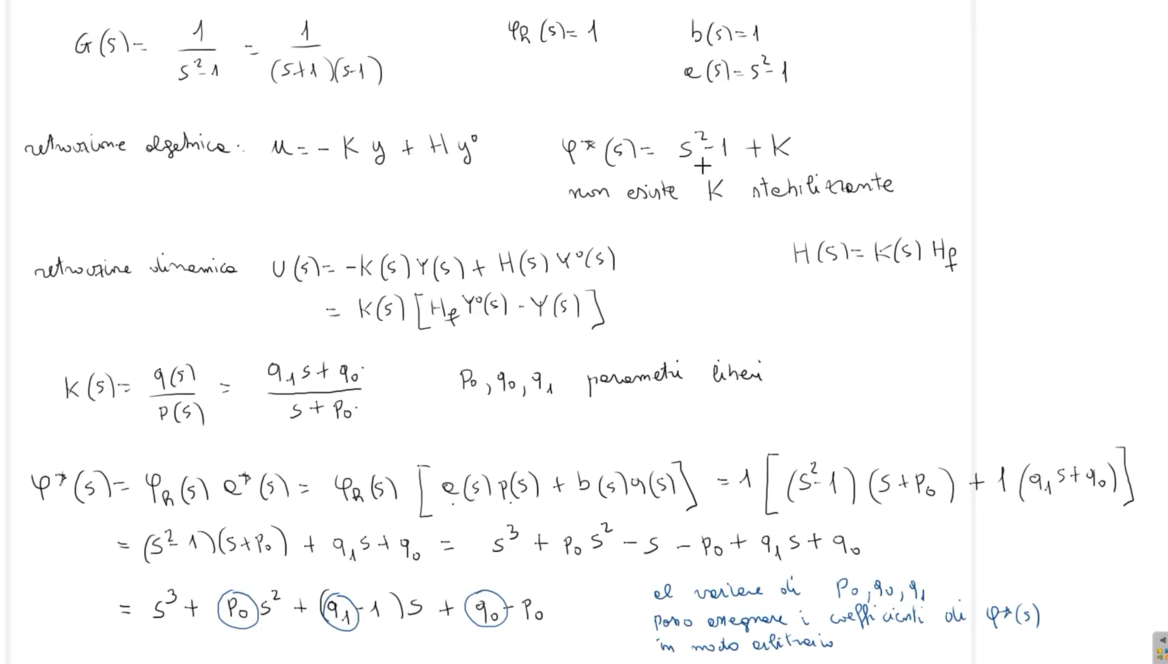 G(s)= 1/(s²-1) = 1/((s+1)(s-1)) φR(s)=1 b(s)=1
a(s)=s²-1
retroazione algebrica: u=-Ky+Hy° φ*(s)= s²-1+K
non esiste K stabilizzante
retroazione dinamica U(s)=-K(s)Y(s)+H(s)Y°(s) H(s)=K(s)Hf
= K(s)[HfY°(s)-Y(s)]
K(s)= q(s)/p(s) = (q₁s+q₀)/(s+p₀) p₀,q₀,q₁ parametri liberi
φ*(s)= φR(s) a*(s)= φR(s)[a(s)p(s)+b(s)q(s)] =1[(s²-1)(s+p₀)+1(q₁s+q₀)]
= (s²-1)(s+p₀)+q₁s+q₀ = s³+p₀s²-s-p₀+q₁s+q₀
= s³+p₀s²+(q₁-1)s+q₀-p₀
al variare di p₀,q₀,q₁
posso assegnare i coefficienti di φ*(s)
in modo arbitrario